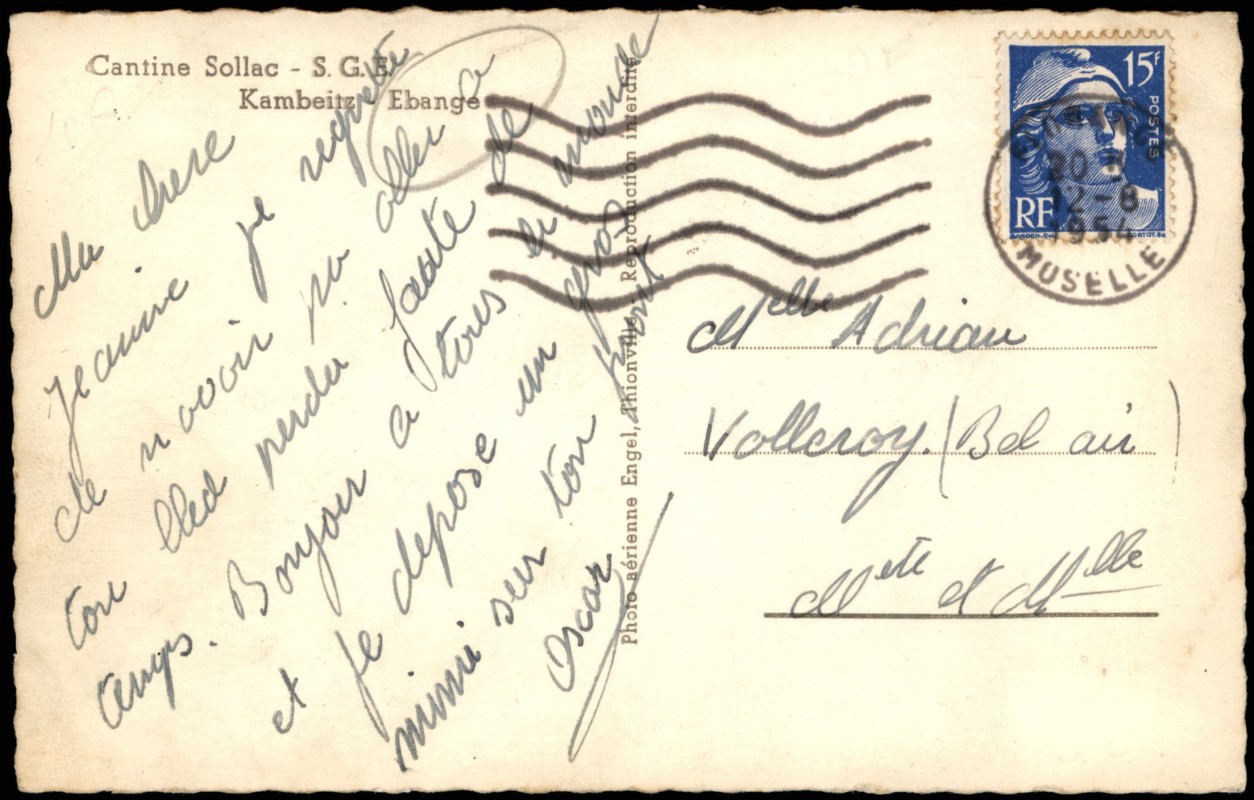 Cantine Sollac - S. G. E.
Kambeitz - Ebange
Ma chere
Jeanine je regrette
de n avoir pu aller a
ton bled perdu faute de
temps. Bonjour a tous le monde
et je depose un gros
mimi sur ton front
Oscar
Photo aérienne Engel, Thionville. Reproduction interdite
15F
POSTES
RF
20 H
12-8
MOSELLE
Melle Adrian
Volleroy. (Bel air)
Mete et Mlle